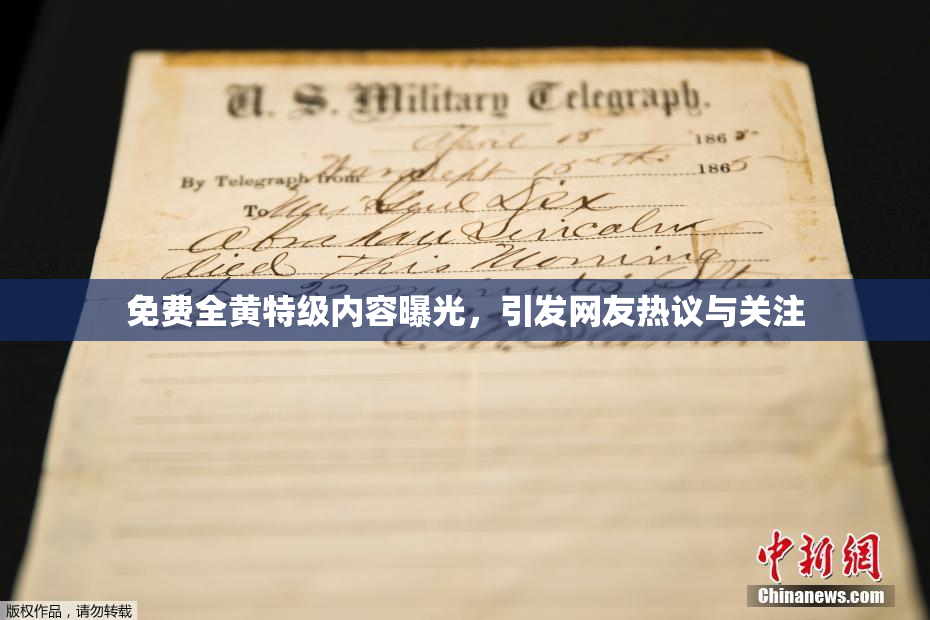 U. S. Military Telegraph.
April 15 1865
By Telegraph from War Dept 15th 1865
To Maj Genl Dix
Abraham Lincoln
died This Morning
22 minutes after
免费全黄特级内容曝光，引发网友热议与关注
E. M. Stanton
中新网
Chinanews.com
版权作品，请勿转载